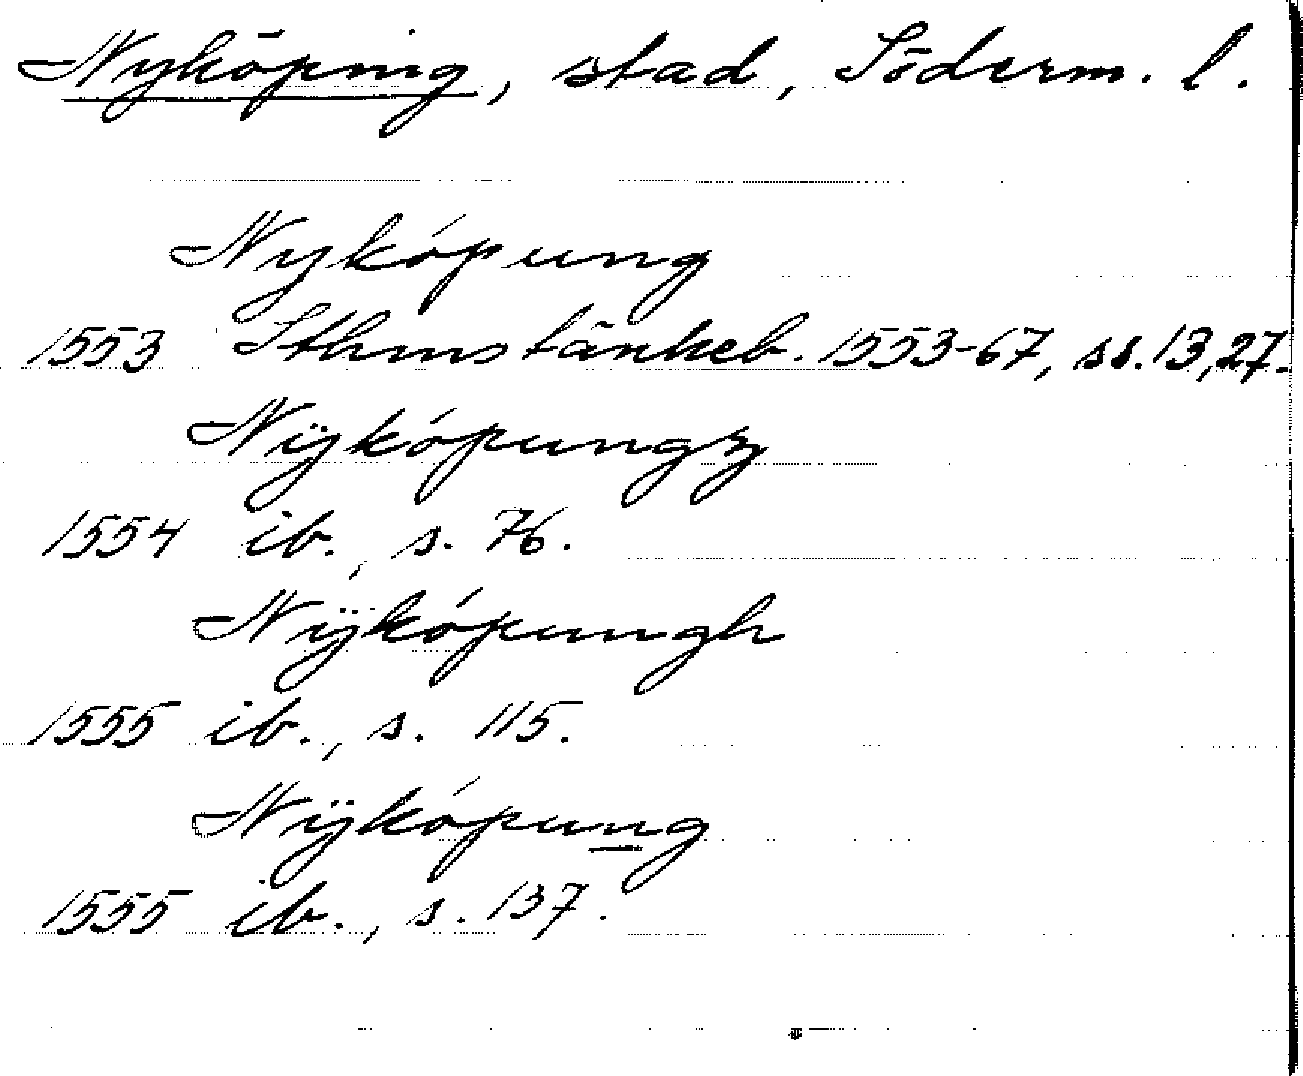 Nyköping, stad, Söderm. l.
Nykópung
1553 Sthms tänkeb. 1553-67, ss. 13, 27.
Nÿkópungz
1554 ib., s. 76.
Nÿkópungh
1555 ib., s. 115.
Nÿkópung
1555 ib., s. 137.